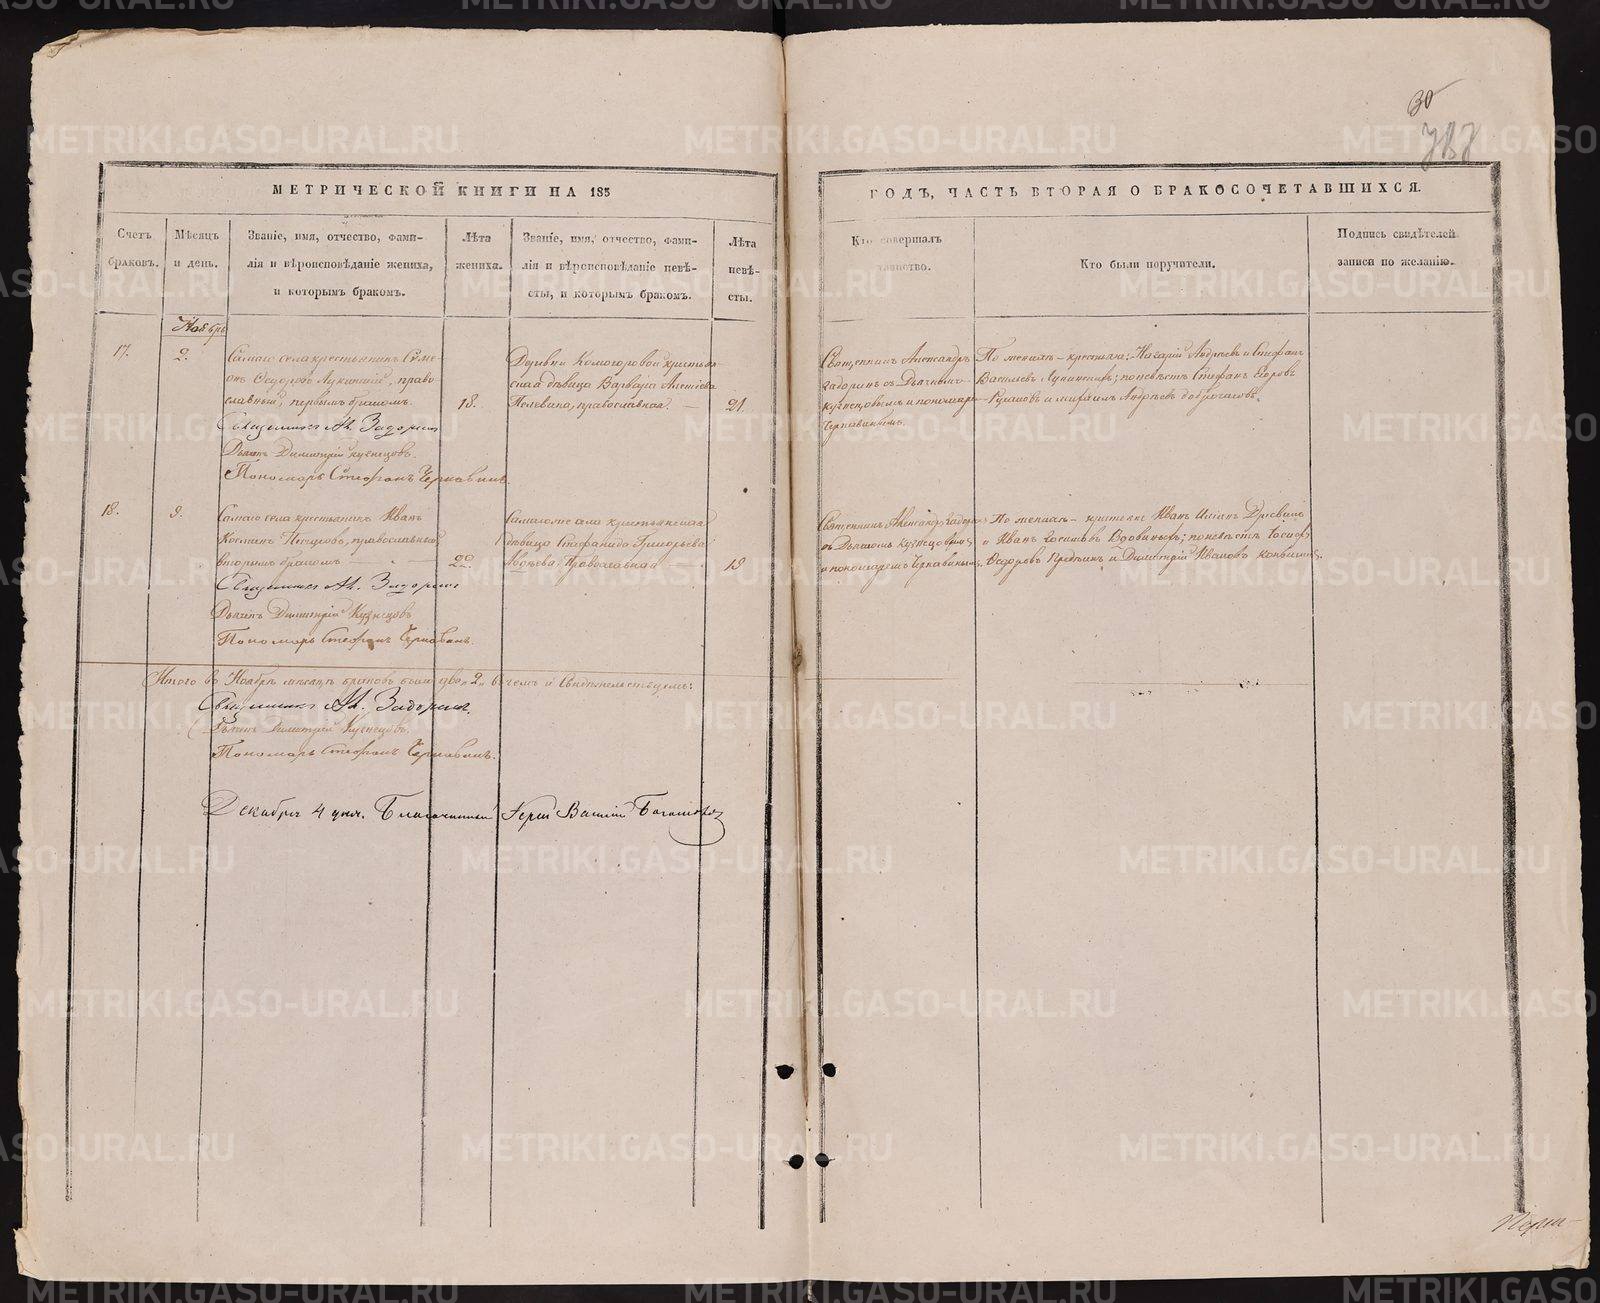 30
787
МЕТРИЧЕСКОЙ КНИГИ НА 185
ГОДЪ, ЧАСТЬ ВТОРАЯ О БРАКОСОЧЕТАВШИХСЯ.
Счетъ браковъ.
Мѣсяцъ и день.
Званіе, имя, отчество, фами-
лія и вѣроисповѣданіе жениха,
и которымъ бракомъ.
Лѣта жениха.
Званіе, имя, отчество, фами-
лія и вѣроисповѣданіе невѣ-
сты, и которымъ бракомъ.
Лѣта невѣ-
сты.
Кто совершалъ
таинство.
Кто были поручители.
Подпись свидѣтелей
записи по желанію.
Ноябрь
17.
2.
Самаго села крестьянинъ Симе-
онъ Ѳедоровъ Лукинскій, право
славный, первымъ бракомъ.
18.
Деревни Комогоровой крестьян
ская дѣвица Варвара Алексѣева
Пелевина, православная. —
21.
Священникъ Александръ
Задоринъ съ Дьячкомъ
Кузнецовымъ и пономаремъ
Чернавинымъ.
По женихѣ – крестьяне: Назарій Андреевъ и Стефанъ
Васильевъ Лукинскихъ; по невѣстѣ Стефанъ Егоровъ
и Михаилъ Андреевъ
Священникъ Ал. Задоринъ
Дьячекъ Димитрій Кузнецовъ.
Пономарь Стефанъ Чернавинъ.
18.
9.
Самаго села крестьянинъ Иванъ
Козминъ православный
вторымъ бракомъ —
22.
Самагоже села крестьянская
дѣвица Стефанида Григорьева
Православная —
19
Священникъ Александръ Задоринъ
съ Дьячкомъ Кузнецовымъ
и пономаремъ Чернавинымъ.
По женихѣ – крестьяне Иванъ
и Иванъ по невѣстѣ
Ѳедоровъ и Димитрій Ивановъ
Священникъ Ал. Задоринъ
Дьячекъ Димитрій Кузнецовъ
Пономарь Стефанъ Чернавинъ.
Итого въ Ноябрѣ мѣсяцѣ браковъ было два „2„ въ чемъ и свидѣтельствуемъ:
Священникъ Ал. Задоринъ.
Дьячекъ Димитрій Кузнецовъ.
Пономарь Стефанъ Чернавинъ.
Декабря 4 дня. Благочинный Іерей Василій
METRIKI.GASO-URAL.RU